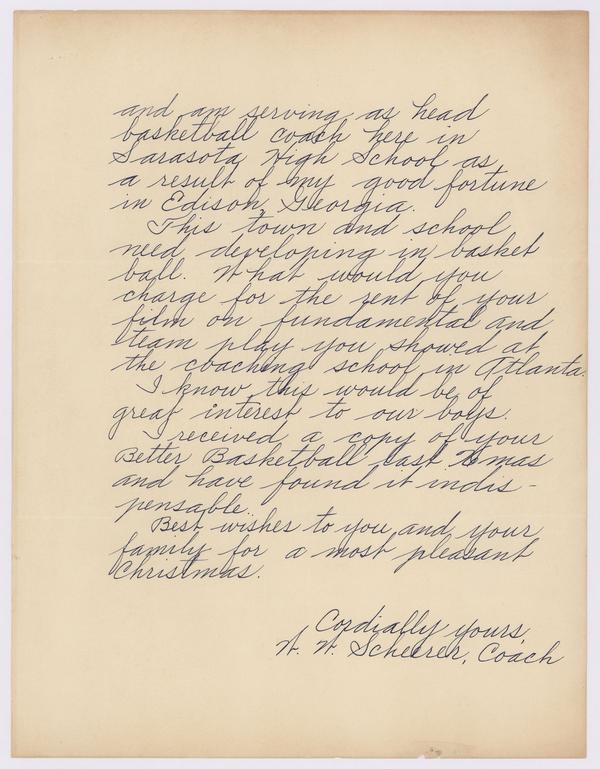 and am serving as head
basketball coach here in
Sarasota High School as
a result of my good fortune
in Edison, Georgia.
This town and school
need developing in basket
ball. What would you
charge for the rent of your
film on fundamental and
team play you showed at
the coaching school in Atlanta.
I know this would be of
great interest to our boys.
I received a copy of your
Better Basketball last Xmas
and have found it indis-
pensable.
Best wishes to you and your
family for a most pleasant
Christmas.
Cordially yours,
W. W. Scheerer, Coach